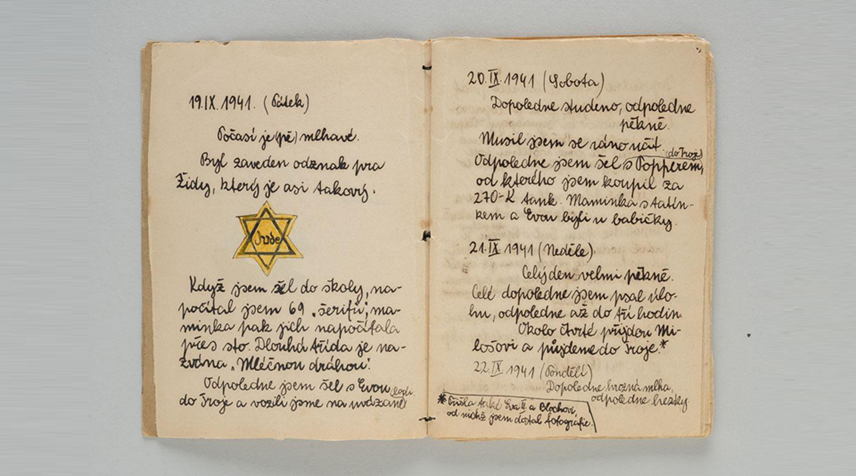 19.IX.1941. (Pátek)
Počasí je (pě) mlhavé.
Byl zaveden odznak pro
Židy, který je asi takový.
Jude
Když jsem šel do školy, na-
počítal jsem 69 „šerifů“, ma-
minka pak jich napočítala
přes sto. Dlouhá třída je na-
zvána „Mléčnou dráhou“.
Odpoledne jsem šel s Evou
do Troje a vozili jsme na uvázané
lodi.
20.IX.1941 (Sobota)
Dopoledne studeno, odpoledne
pěkně.
Musil jsem se ráno učit.
(do Troje)
Odpoledne jsem šel s Popprem,
od kterého jsem koupil za
270-K tank. Maminka s tatín-
kem a Evou byli u babičky.
21.IX 1941 (Neděle)
Celý den velmi pěkně.
Celé dopoledne jsem psal úlo-
hu, odpoledne až do tří hodin
Okolo čtvrté půjdou Mi-
lošovi a půjdeme do Troje.*
22.IX 1941 (Pondělí)
Dopoledne hrozná mlha,
odpoledne hezky
* také Eva a
od nichž jsem dostal fotografie.